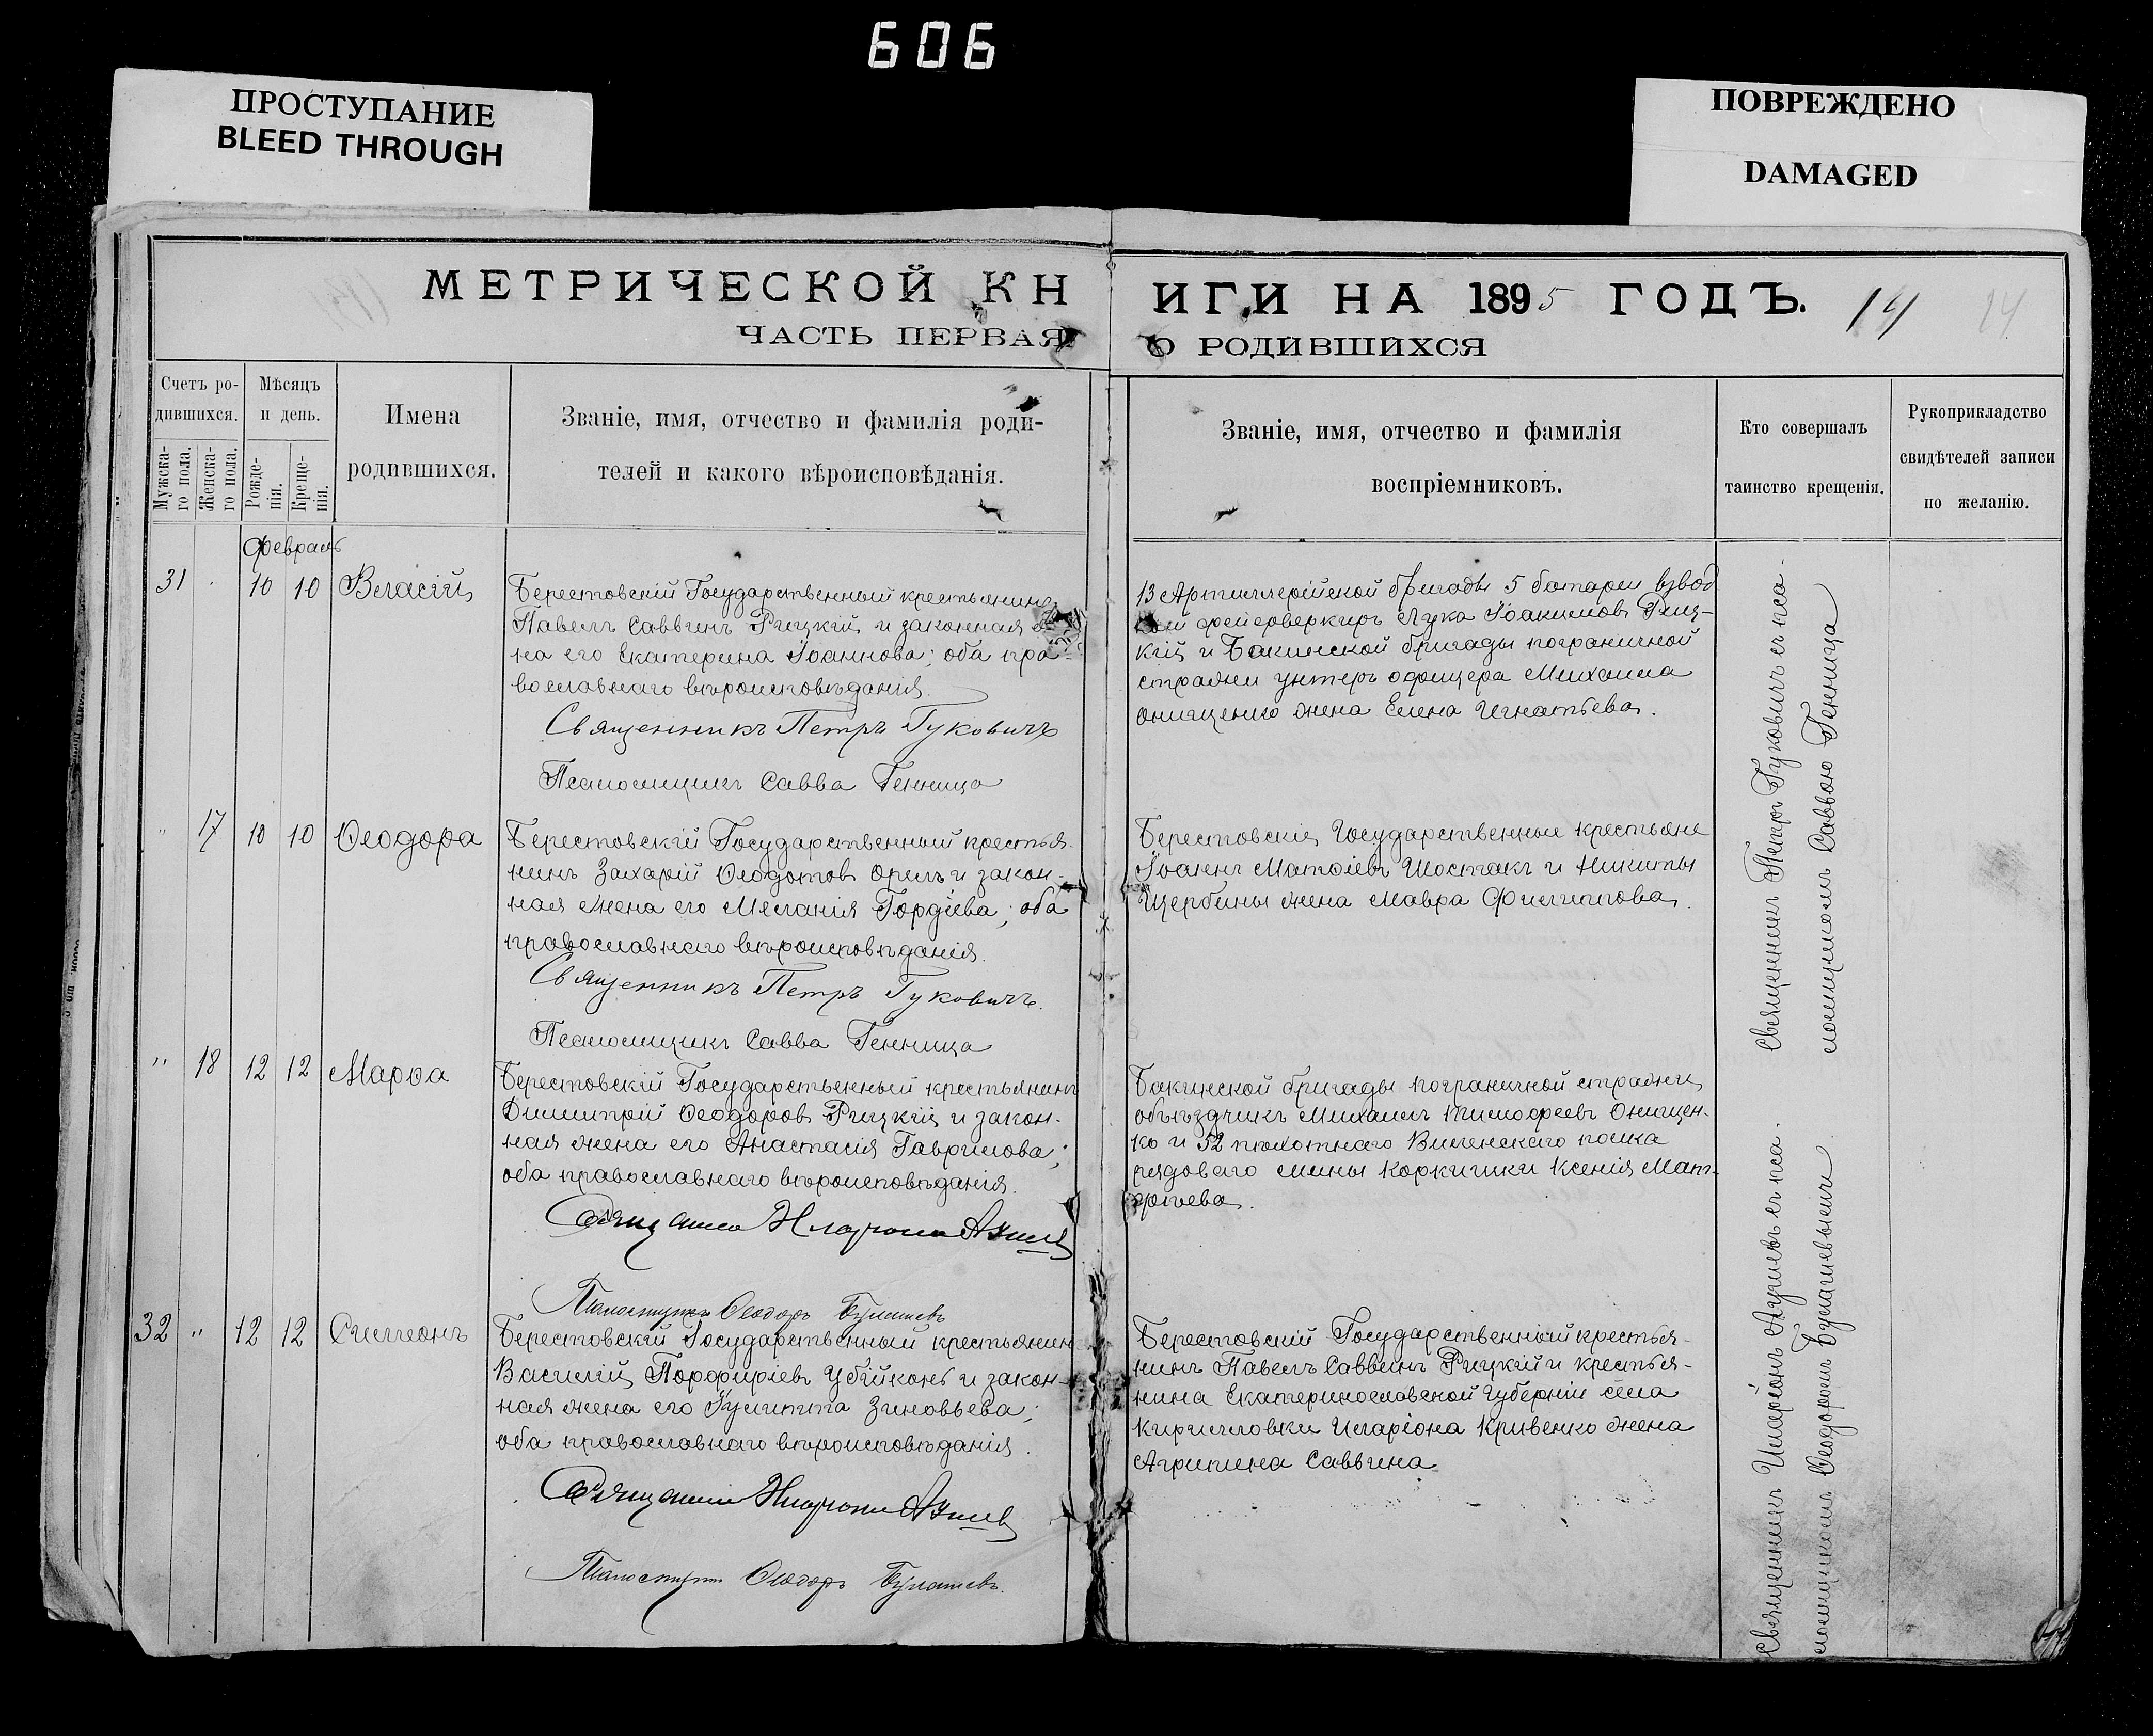 606
ПРОСТУПАНИЕ
BLEED THROUGH
ПОВРЕЖДЕНО
DAMAGED
МЕТРИЧЕСКОЙ КН
ЧАСТЬ ПЕРВАЯ
ИГИ НА 1895 ГОДЪ. 14 14
О РОДИВШИХСЯ
Счетъ ро-
дившихся.
Мужска-
го пола.
Женска-
го пола.
Мѣсяцъ
и день.
Рожде-
нія.
Креще-
нія.
Имена
родившихся.
Званіе, имя, отчество и фамилія роди-
телей и какого вѣроисповѣданія.
Званіе, имя, отчество и фамилія
воспріемниковъ.
Кто совершалъ
таинство крещенія.
Рукоприкладство
свидѣтелей записи
по желанію.
Февраль
31 10 10 Власій
Берестовскій Государственный крестьянинъ
Павелъ Саввинъ Рицкій и законная
на его Екатерина Іоаннова; оба пра-
вославнаго вѣроисповѣданія.
Священникъ Петръ Гуковичъ
Псаломщикъ Савва Генница
13 Артиллерійской бригады 5 батареи взвод
ный фейерверкиръ Лука Іоакимовъ Риц-
кій и Бакинской бригады пограничной
стражи унтеръ офицера Михаила
Онищенко жена Елена Игнатьева.
" 17 10 10 Ѳеодора
Берестовскій Государственный крестья-
нинъ Захарій Ѳеодотовъ Орелъ и закон-
ная жена его Меланія Гордіева; оба
православнаго вѣроисповѣданія.
Священникъ Петръ Гуковичъ.
Псаломщикъ Савва Генница
Берестовскіе Государственные крестьяне
Іоаннъ Матѳіевъ Шостакъ и Никиты
Щербины жена Мавра Филиппова.
Священникъ Петръ Гуковичъ съ пса-
ломщикомъ Саввою Генница
" 18 12 12 Марѳа
Берестовскій Государственный крестьянинъ
Димитрій Ѳеодоровъ Рицкій и закон-
ная жена его Анастасія Гаврилова;
оба православнаго вѣроисповѣданія.
Псаломщикъ Ѳеодоръ
Бакинской бригады пограничной стражи
объѣздчикъ Михаилъ Тимофеевъ Онищен-
ко и 52 пѣхотнаго Виленскаго полка
рядоваго Мины Коркишки Ксенія Мат-
фѣева.
32 " 12 12 Симеонъ
Берестовскій Государственный крестьянин
Василій Порфиріевъ Убійконь и закон-
ная жена его Іулитта Зиновьева;
оба православнаго вѣроисповѣданія.
Псаломщикъ Ѳеодоръ
Берестовскій Государственный крестья-
нинъ Павелъ Саввинъ Рицкій и крестья-
нина Екатеринославской Губерніи села
Кирилловки Иларіона Кривенко жена
Агрипина Саввина
Священникъ Иларіонъ съ пса-
ломщикомъ Ѳеодоромъ